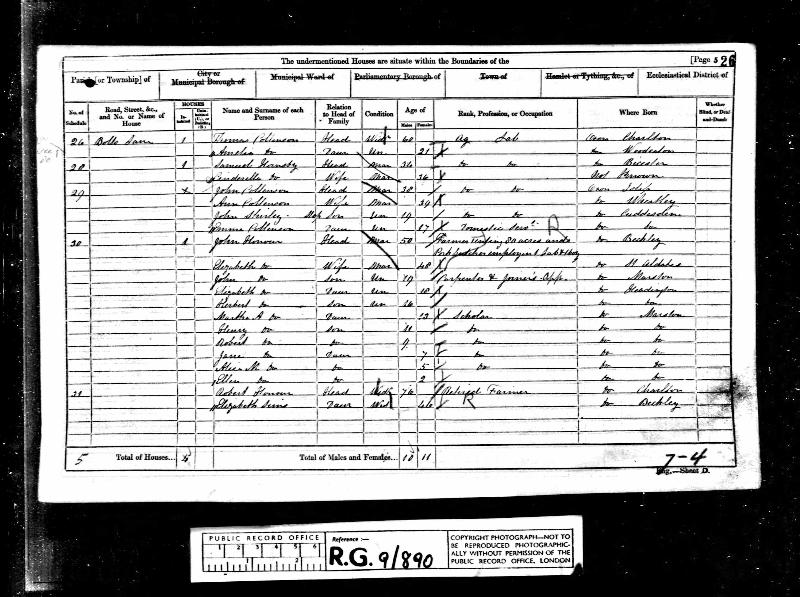 The undermentioned Houses are situate within the Boundaries of the
[Page 5 26
Parish [or Township] of
City or Municipal Borough of
Municipal Ward of
Parliamentary Borough of
Town of
Hamlet or Tything, &c., of
Ecclesiastical District of
No. of Schedule
Road, Street, &c., and No. or Name of House
HOUSES
Name and Surname of each Person
Relation to Head of Family
Condition
Age of
Males
Females
Rank, Profession, or Occupation
Where Born
Whether Blind, or Deaf-and-Dumb
26 1 Head 60 Ag Lab Oxon Charlton
Amelia Do Daur Un 21 Do
1 Samuel Hornsby Head Mar 36 Do Do Do Bicester
Cinderella Do Wife Mar 36 Not Known
29 John Head Mar 38 Do Do Oxon Islip
Ann Wife Mar 39 Do Wheatley
John Shirley Son Un 19 Do Do Do Cuddesdon
Emma Daur Un Domestic Servt Do Do
30 1 John Honour Head Mar 50 Farmer 80 acres and Do Beckley
Elizabeth Do Wife Mar 48 Do St Aldates
John Do Son Un 19 Carpenter & Joiner's App. Do Marston
Elizabeth Do Daur Un 18 Do Headington
Herbert Do Son Un Do Do
Martha A Do Daur 13 Scholar Do Marston
Henry Do Son 11 Do Do Do
Robert Do Do 9 Do Do Do
Jane Do Daur 7 Do Do Do
Do Do 5 Do Do Do
Ellen Do Do 2 Do Do
31 Robert Honour Head 76 Retired Farmer Do Charlton
Elizabeth Daur Wid 46 Do Beckley
5 Total of Houses... Total of Males and Females... 10 11
7-4
Eng.—Sheet D.
PUBLIC RECORD OFFICE
1 2 3 4 5 6
1 2
Reference :-
R.G. 9/890
COPYRIGHT PHOTOGRAPH—NOT TO
BE REPRODUCED PHOTOGRAPHIC-
ALLY WITHOUT PERMISSION OF THE
PUBLIC RECORD OFFICE, LONDON